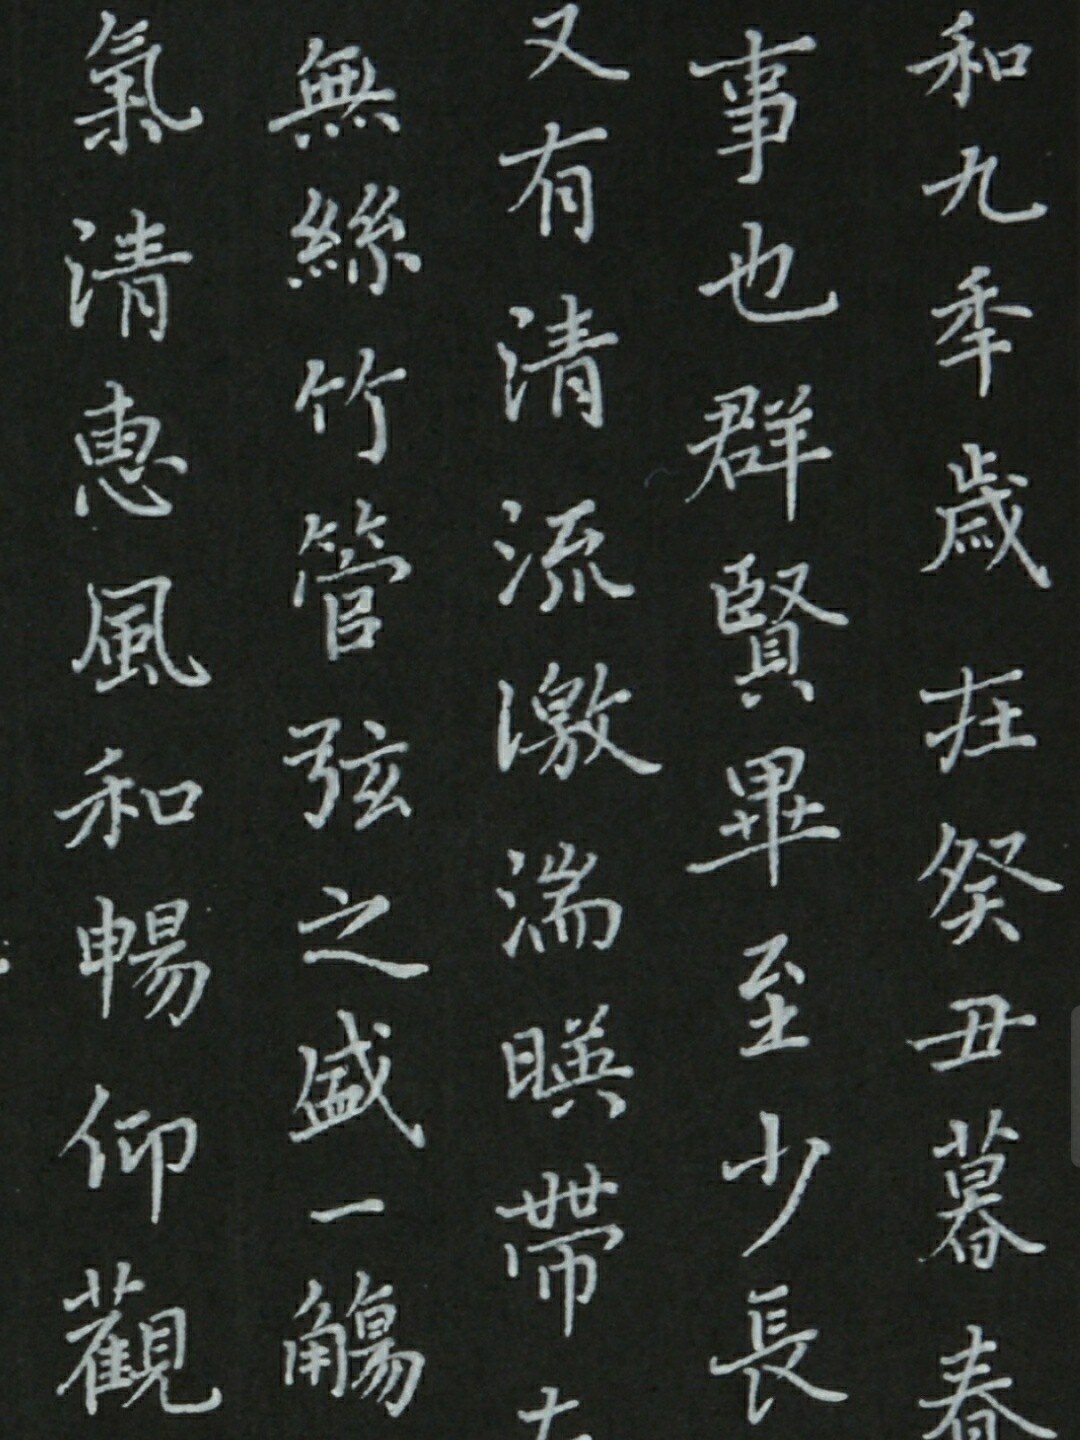 和九秊歲在癸丑暮春
事也群賢畢至少長
又有清流激湍暎帶左
無絲竹管弦之盛一觴
氣清惠風和暢仰觀